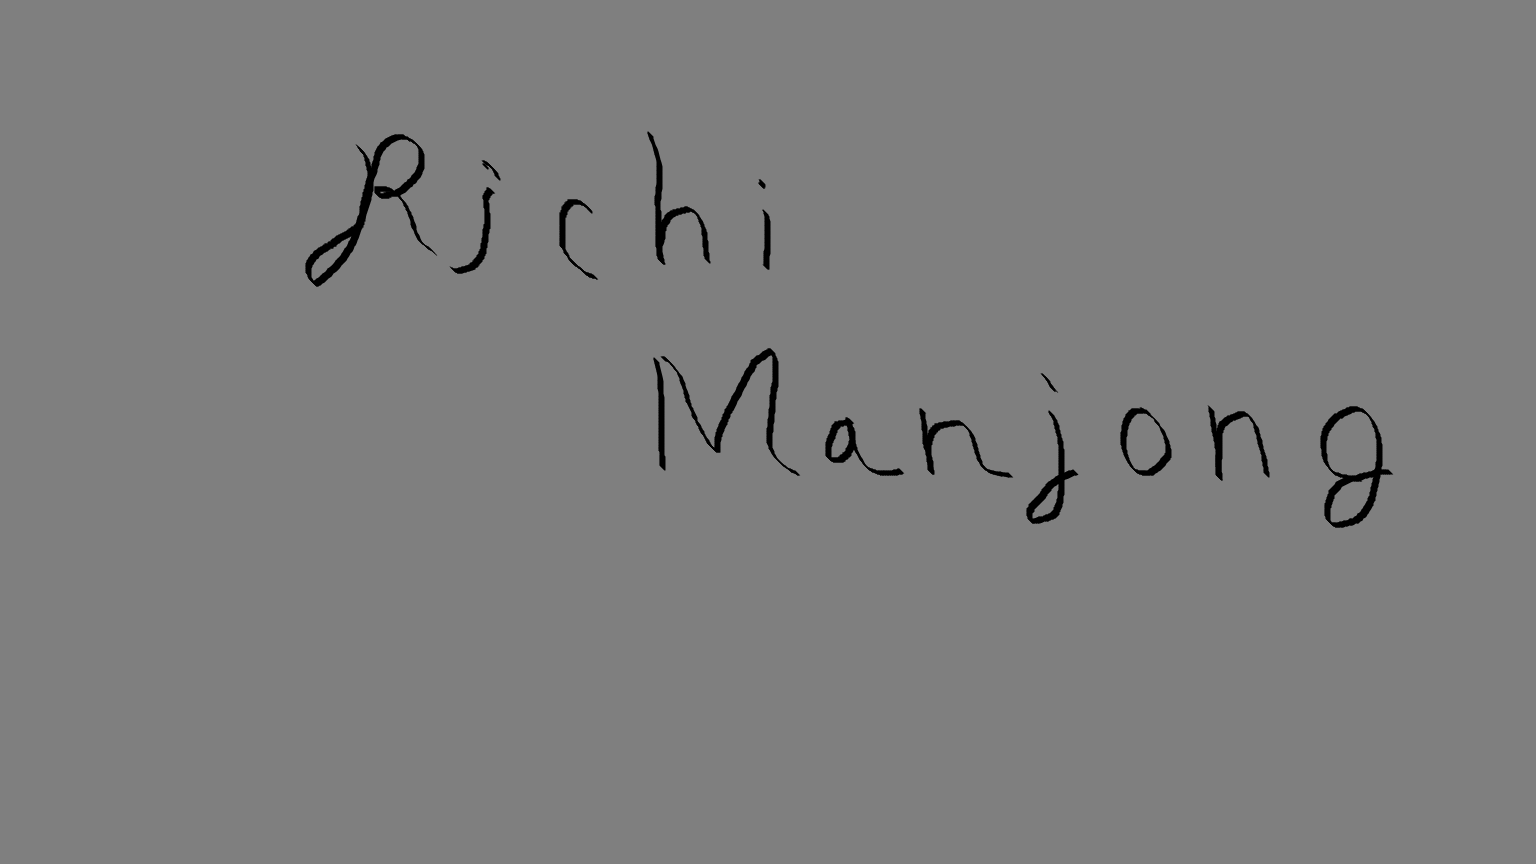 Richi
Manjong